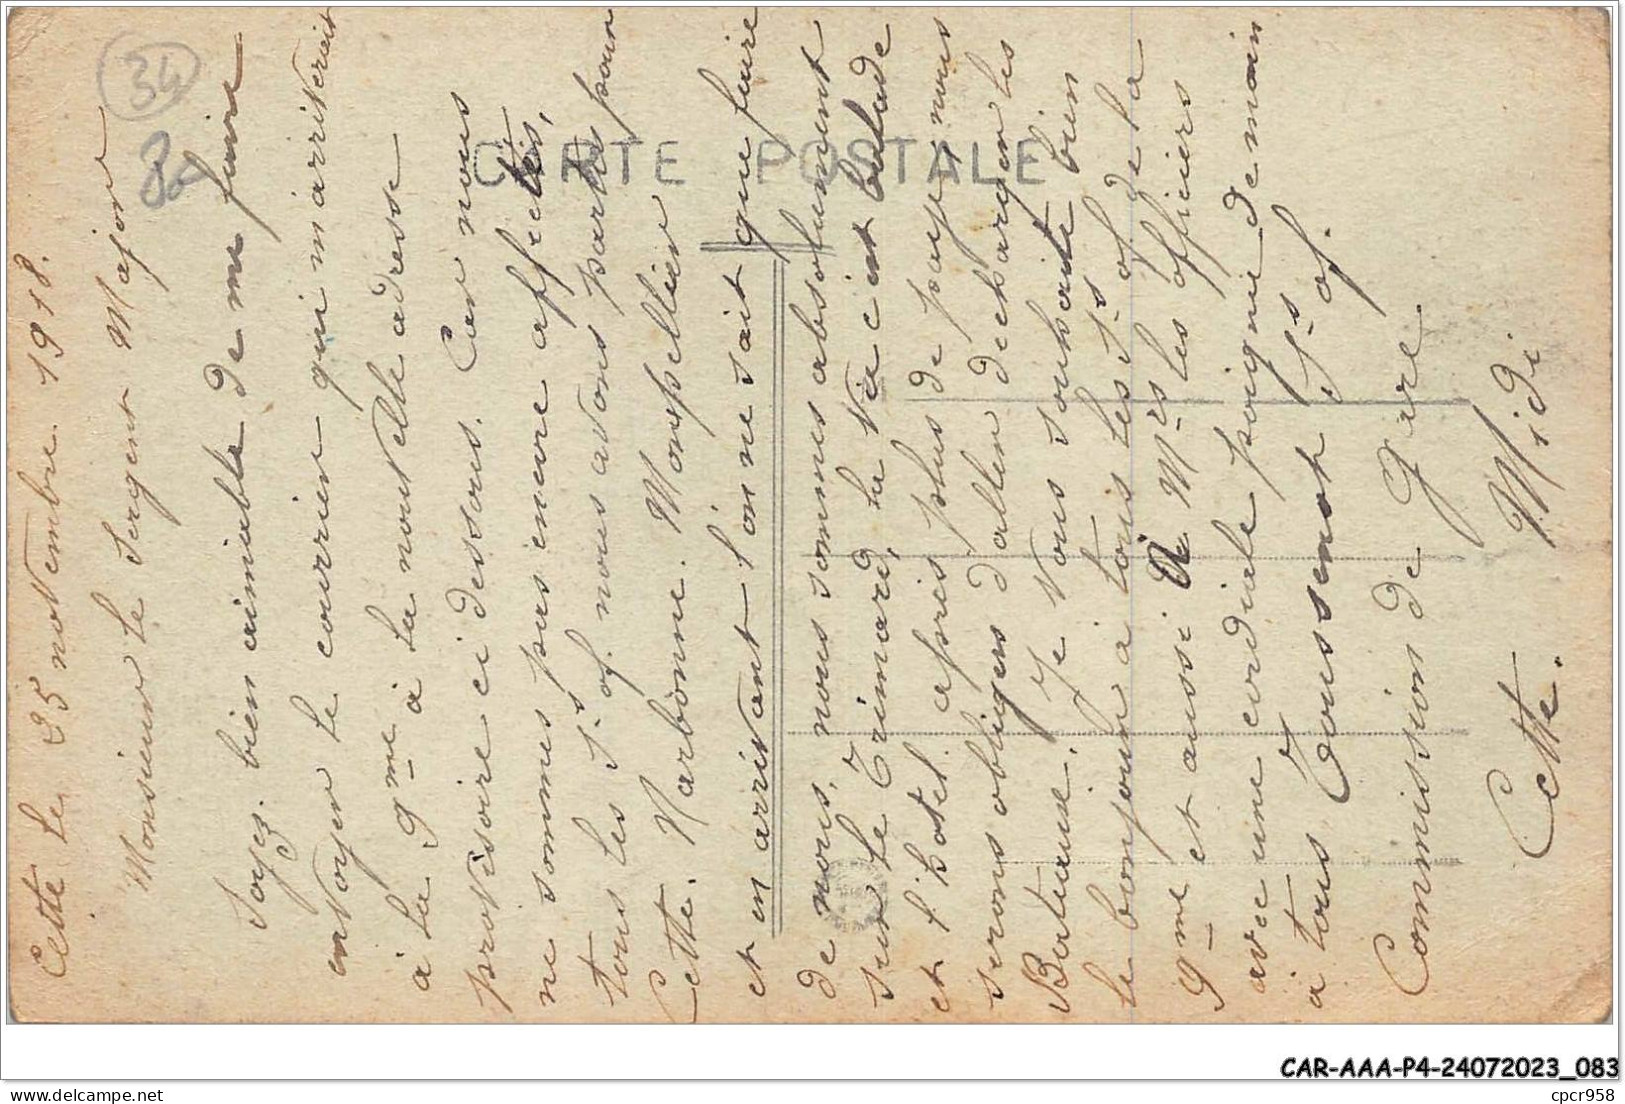 Cette le 25 novembre 1918.
Monsieur le Sergent Major
Soyez bien aimiable de me faire
envoyer le courrier qui m'arriverait
à la 9me à la nouvelle adresse
provisoire ci dessous. Car nous
ne sommes pas encore affectés,
tous les S-s of. nous avons partis pour
Cette. Narbonne. Monspellier
et en arrivant l'on ne sait que faire
de nous, nous sommes absolument
sur le Trimard, la Vie c'est balade
et l'hotel. après plus de paye nous
serons obligers d'allen décharger les
Bateaux. Je vous souhaite bien
le bonjour à tous les S-s of de la
9me et aussi à Mrs les officiers
avec une cordiale poignie de main
à tous Toussenot S-s of.
Commission de Gare
Cette. Midi
CARTE POSTALE
34
80
CAR-AAA-P4-24072023_083
cpcr958